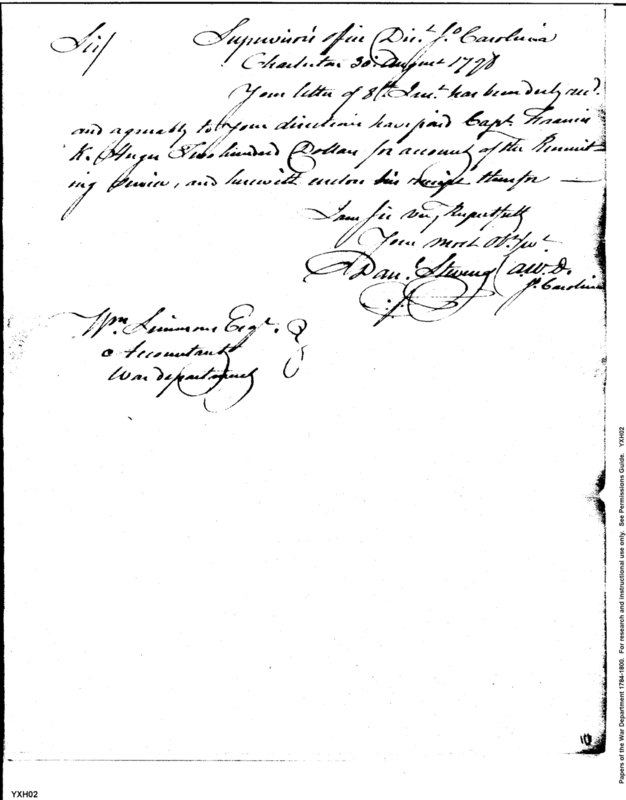 Supervisor's office Dist. So. Carolina
Sir/
Charleston 30. August 1798
Your letter of 8th. Inst. has been duly recd.
and agreably to your directions have paid Capt. Francis
K. Huger Two hundred Dollars for account of the Recruit-
ing Service, and herewith enclose his receipt therefor —
I am Sir very Respectfully
Your most Obt. Servt.
Danl. Stevens A.W.D.
So. Carolina
Wm. Simmons Esqr.
Accountant
War department
10
YXH02
Papers of the War Department 1784-1800. For research and instructional use only. See Permissions Guide. YXH02